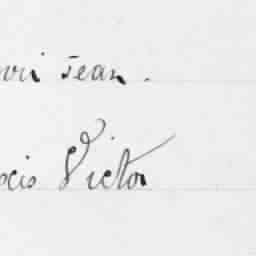 nri Jean.
cis Victor